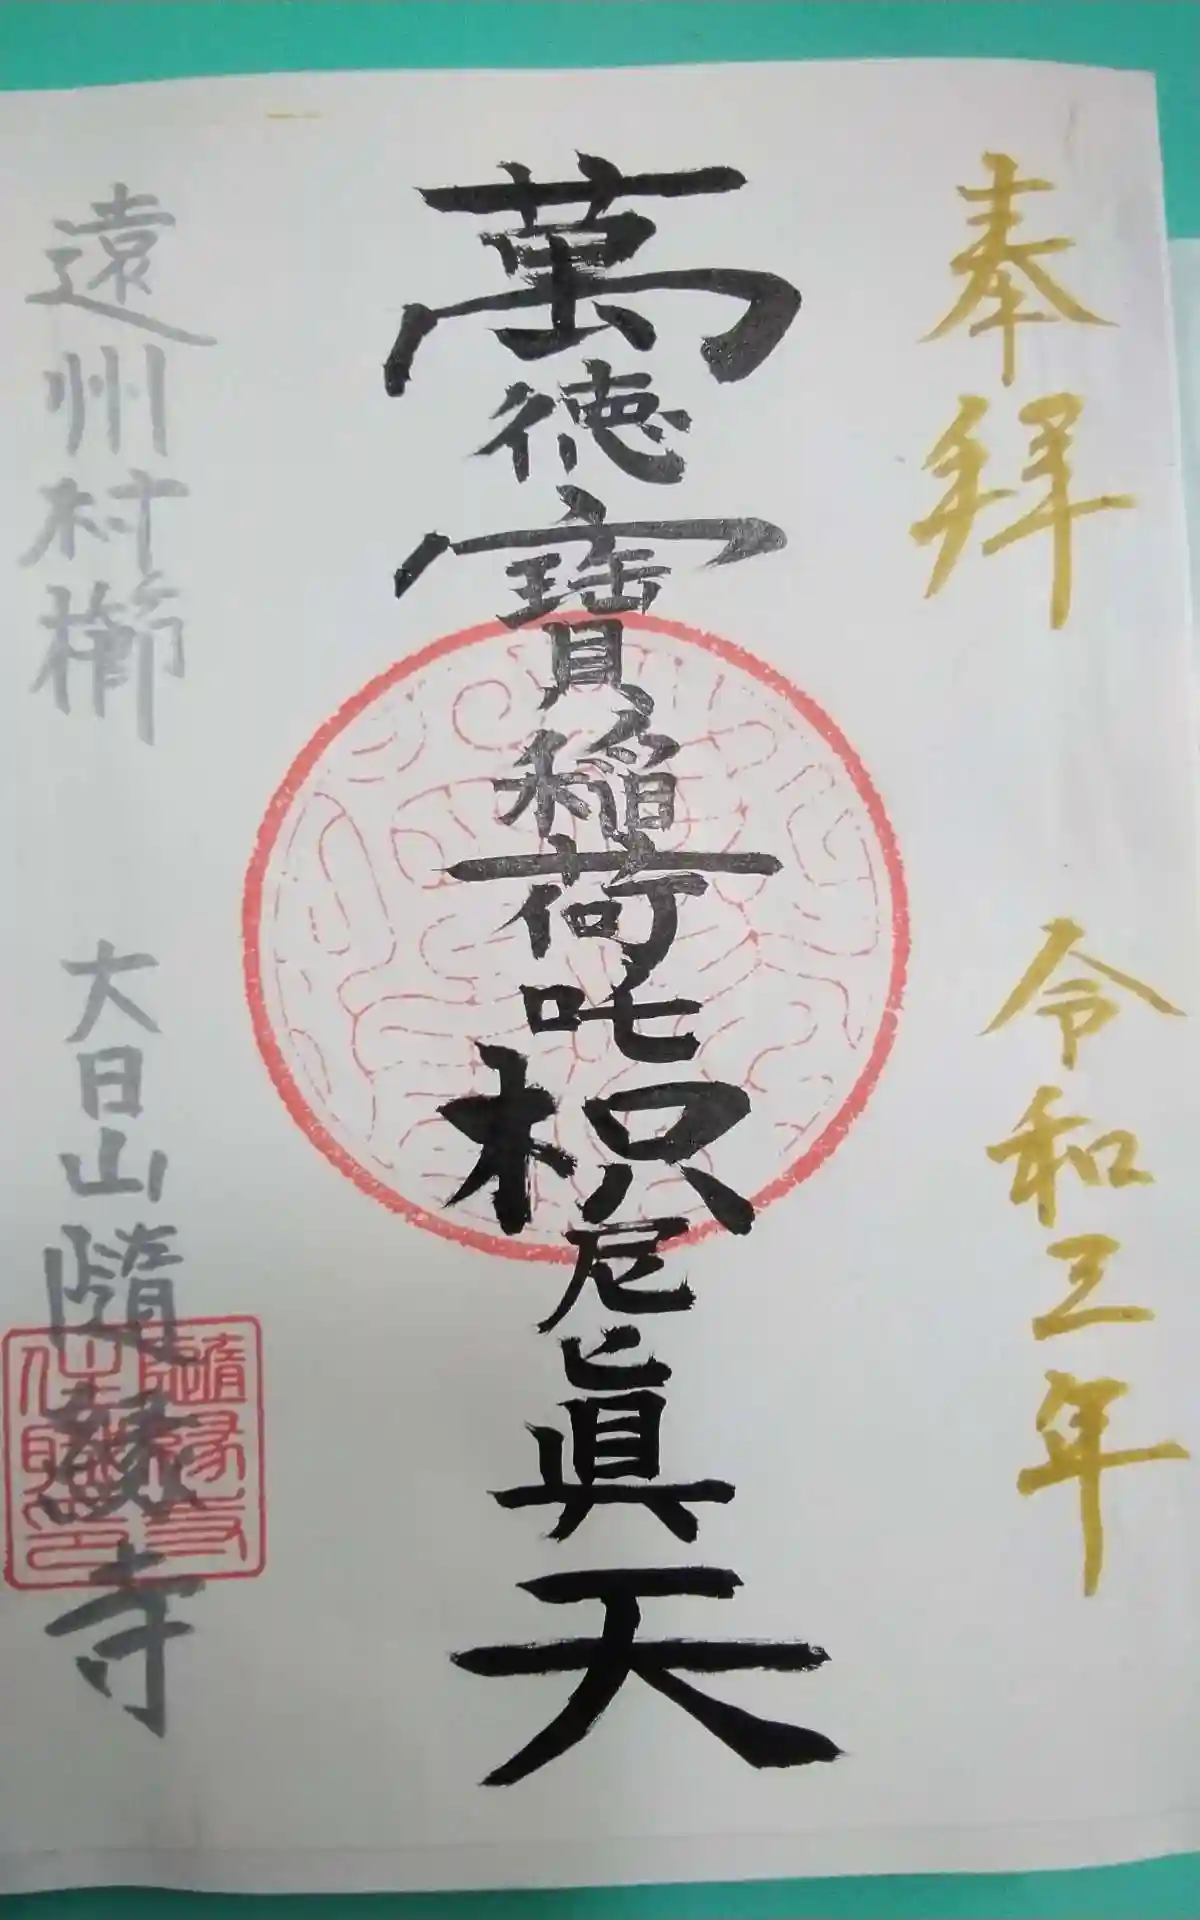 奉拝
令和三年
萬徳寳稲荷吒枳尼眞天
遠州村櫛
大日山隨縁寺